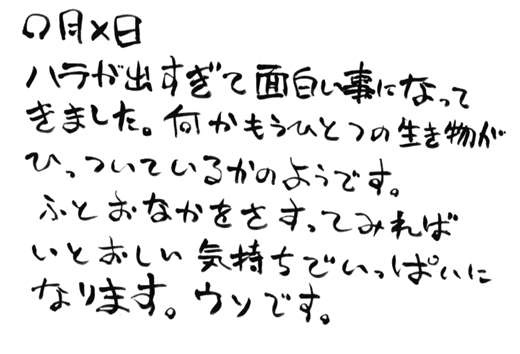 〇月×日
ハラが出すぎて面白い事になって
きました。何かもうひとつの生き物が
ひっついているかのようです。
ふとおなかをさすってみれば
いとおしい気持ちでいっぱいに
なります。ウソです。